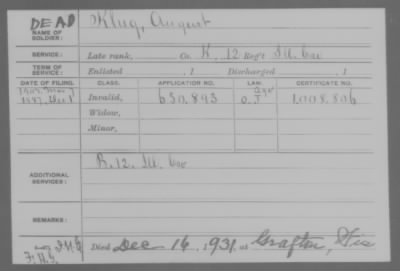 DEAD Klug, August
NAME OF SOLDIER:
SERVICE: Late rank, Co. K, 12 Reg't Ill. Cav
TERM OF SERVICE: Enlisted , 1 Discharged , 1
DATE OF FILING. CLASS. APPLICATION NO. LAW. CERTIFICATE NO.
Invalid, 650.893 O.J. 1,008.806
Widow,
Minor,
ADDITIONAL SERVICES: B. 12. Ill. Cav
REMARKS:
Died Dec 16, 1931, at Grafton, Wis